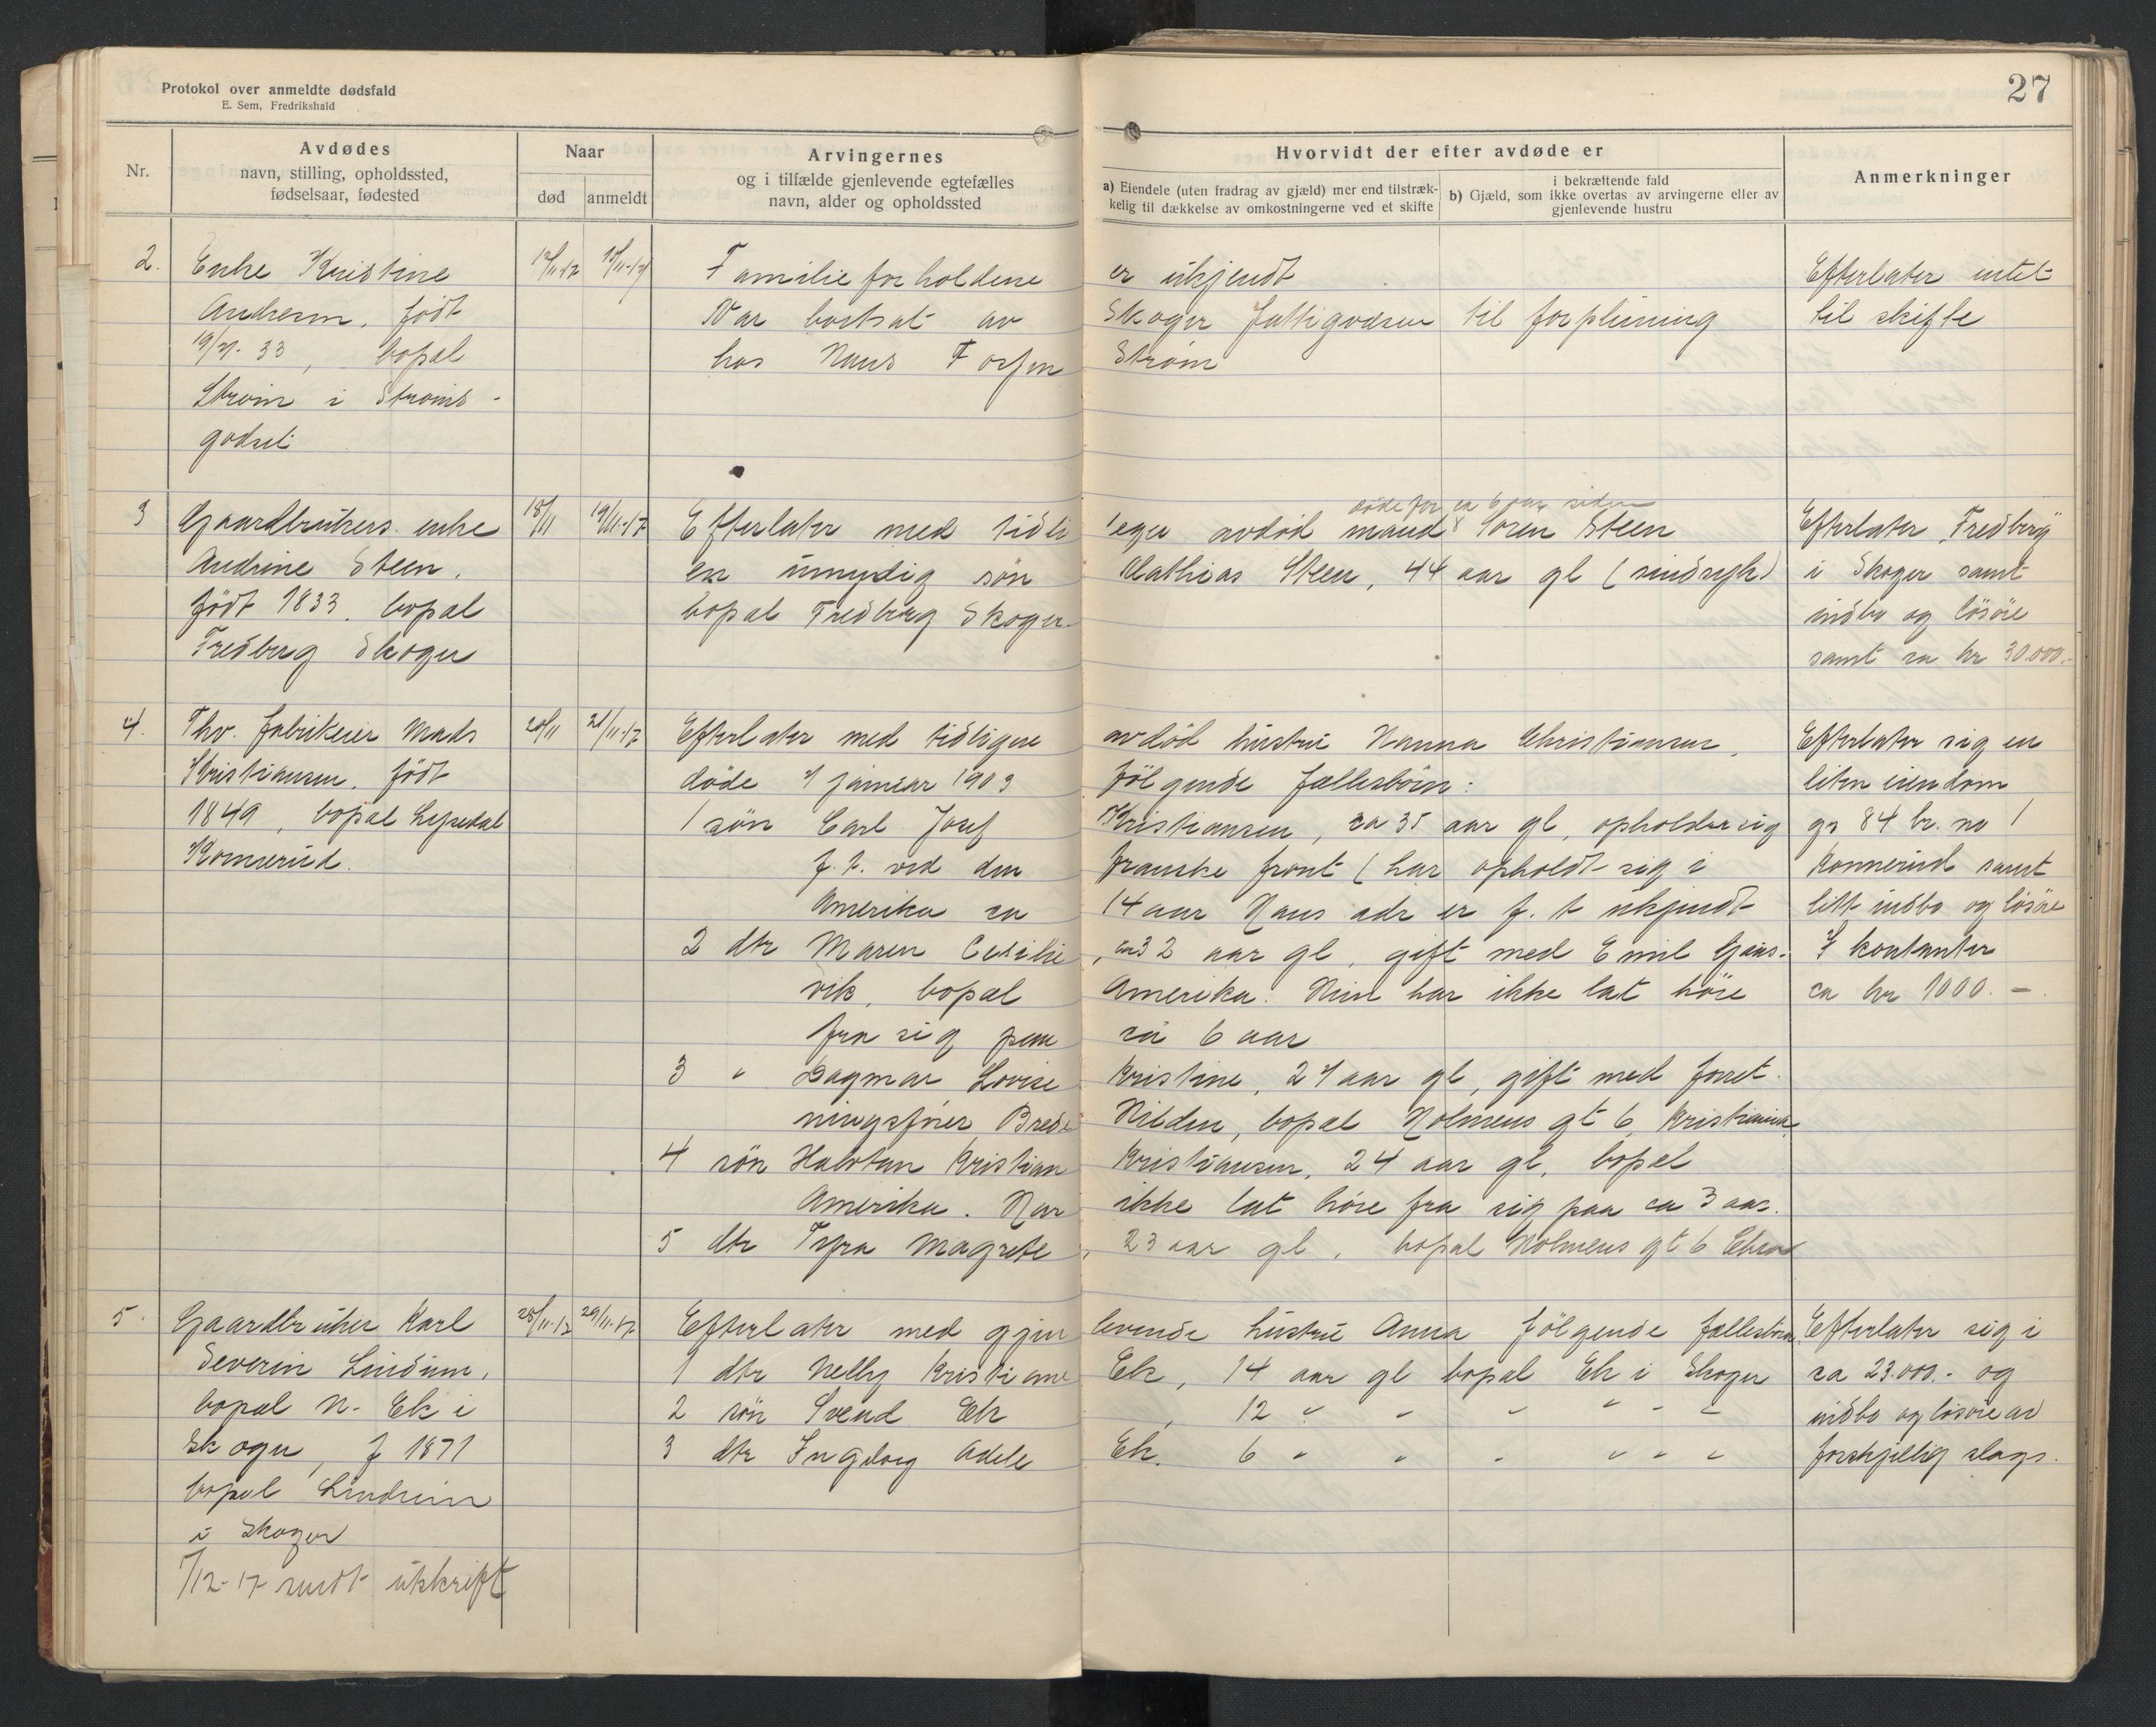 Protokol over anmeldte dødsfald
E. Sem, Fredrikshald
27
Nr.
Avdødes
navn, stilling, opholdssted,
fødselsaar, fødested
Naar
død anmeldt
Arvingernes
og i tilfælde gjenlevende egtefælles
navn, alder og opholdssted
Hvorvidt der efter avdøde er
a) Eiendele (uten fradrag av gjæld) mer end tilstræk-
kelig til dækkelse av omkostningerne ved et skifte
i bekræftende fald
b) Gjæld, som ikke overtas av arvingerne eller av
gjenlevende hustru
Anmerkninger
2. Enke Kristine
Andresen, født
19/7. 33, bopæl
Strøm i Strøms-
godset
Familieforholdene er ukjendt
Var bortsat av Skoger fattigvæsen til forpleining
hos Hans Strøm
Efterlater intet
til skifte
3 Gaardbrukers enke
Andrine Steen.
født 1833. bopæl
Fredberg Skoger
18/11 19/11-17
døde for ca 6 aar siden
Efterlater med tidligere avdød mand Søren Steen
en umyndig søn Mathias Steen, 44 aar gl (sindsyk)
bopæl Fredberg Skoger.
Efterlater "Fredberg"
i Skoger samt
indbo og løsøre
samt ca kr 30.000.-
4. Thv. fabrikeier Mads
Kristiansen, født
1849, bopæl
Konnerud.
20/11 21/11-17
Efterlater med tidligere avdød hustru Hanna Christiansen,
døde 7 januar 1903 følgende fællesbørn:
1 søn Carl Josef Kristiansen, ca 35 aar gl, opholder sig
f.t. ved den franske front (har opholdt sig i
Amerika ca 14 aar Hans adr er f.t ukjendt
2 dtr Maren Cecilie, ca 32 aar gl, gift med Emil Gaus-
vik, bopæl Amerika. Hun har ikke lat høre
fra sig paa ca 6 aar
3 " Dagmar Lovise Kristine, 27 aar gl, gift med forret-
ningsfører Brede Hilden, bopæl Holmens gt 6, Kristiania
4 søn Halvtan Kristian Kristiansen, 24 aar gl, bopæl
Amerika. Har ikke lat høre fra sig paa ca 3 aar.
5 dtr Tyra Magrete, 23 aar gl, bopæl Holmens gt 6 Chra
Efterlater sig en
liten eiendom
gr 84 br. no 1
Konnerud samt
litt indbo og løsøre
I kontanter
ca kr 1000.-
5. Gaardbruker Karl
Severin Lindum,
bopæl N. Ek i
Skoger, f 1871
bopæl Lindum
i Skoger
7/12-17 sendt utskrift
28/11-17 29/11-17
Efterlater med gjenlevende hustru Anna følgende fællesbørn
1 dtr Nelly Kristiane Ek, 14 aar gl bopæl Ek i Skoger
2 søn Svend Ek, 12 " " " " " "
3 dtr Ingeborg Adele Ek. 6 " " " " " "
Efterlater sig i
ca 23.000.- og
indbo og løsøre av
forskjellig slags.